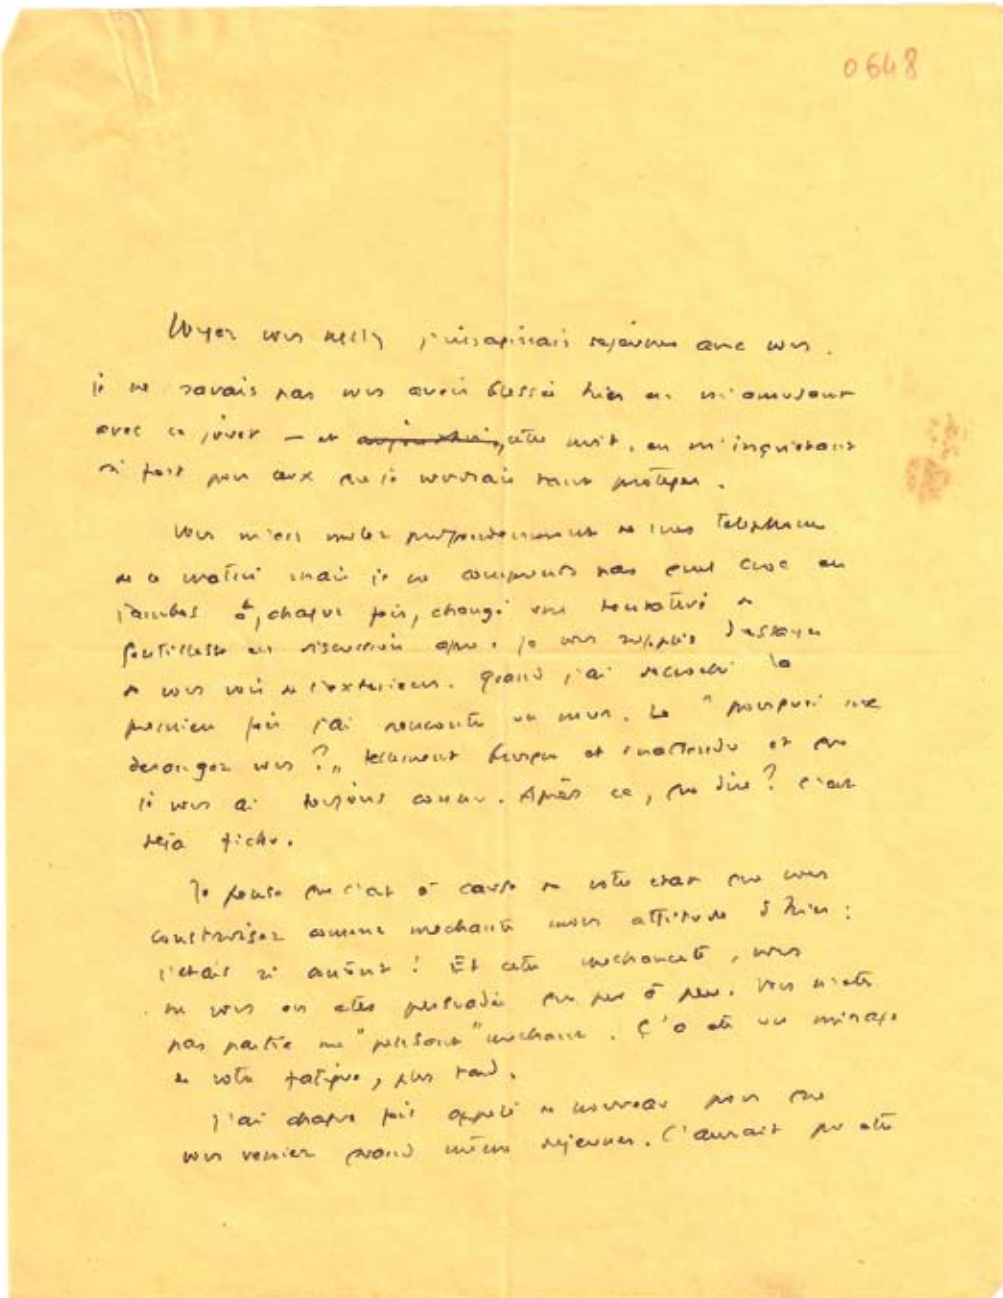 0648
Voyez vous Nelly j'me déjeuner avec vous.
je ne savais pas vous avoir blessée hier en m'amusant
avec ce jouet — et cette nuit, en m'inquiétant
si fort pour eux que je voudrais tant protéger.
Vous m'en voulez profondément de mes téléphones
de ce matin mais je ne comprends pas quel croc en
jambes a, chaque fois, changé une tentative de
gentillesse en discussion. je vous supplie d'essayer
de vous voir de l'extérieur. Quand j'ai la
première fois j'ai rencontré un mur. Le "pourquoi me
dérangez vous?" tellement brusque et inattendu et que
je vous ai toujours connu. Après ça, que dire? c'est
déjà fichu.
Je pense que c'est à cause de votre état que vous
construisez comme méchante mon attitude d'hier:
j'étais si! Et cette méchanceté, vous
ne vous en êtes persuadée que peu à peu. Vous n'êtes
pas partie me "pensant" méchant. Ç'a été un mirage
de votre fatigue, plus tard.
J'ai chaque fois appelé de nouveau pour que
vous veniez quand même déjeuner. C'aurait pu être